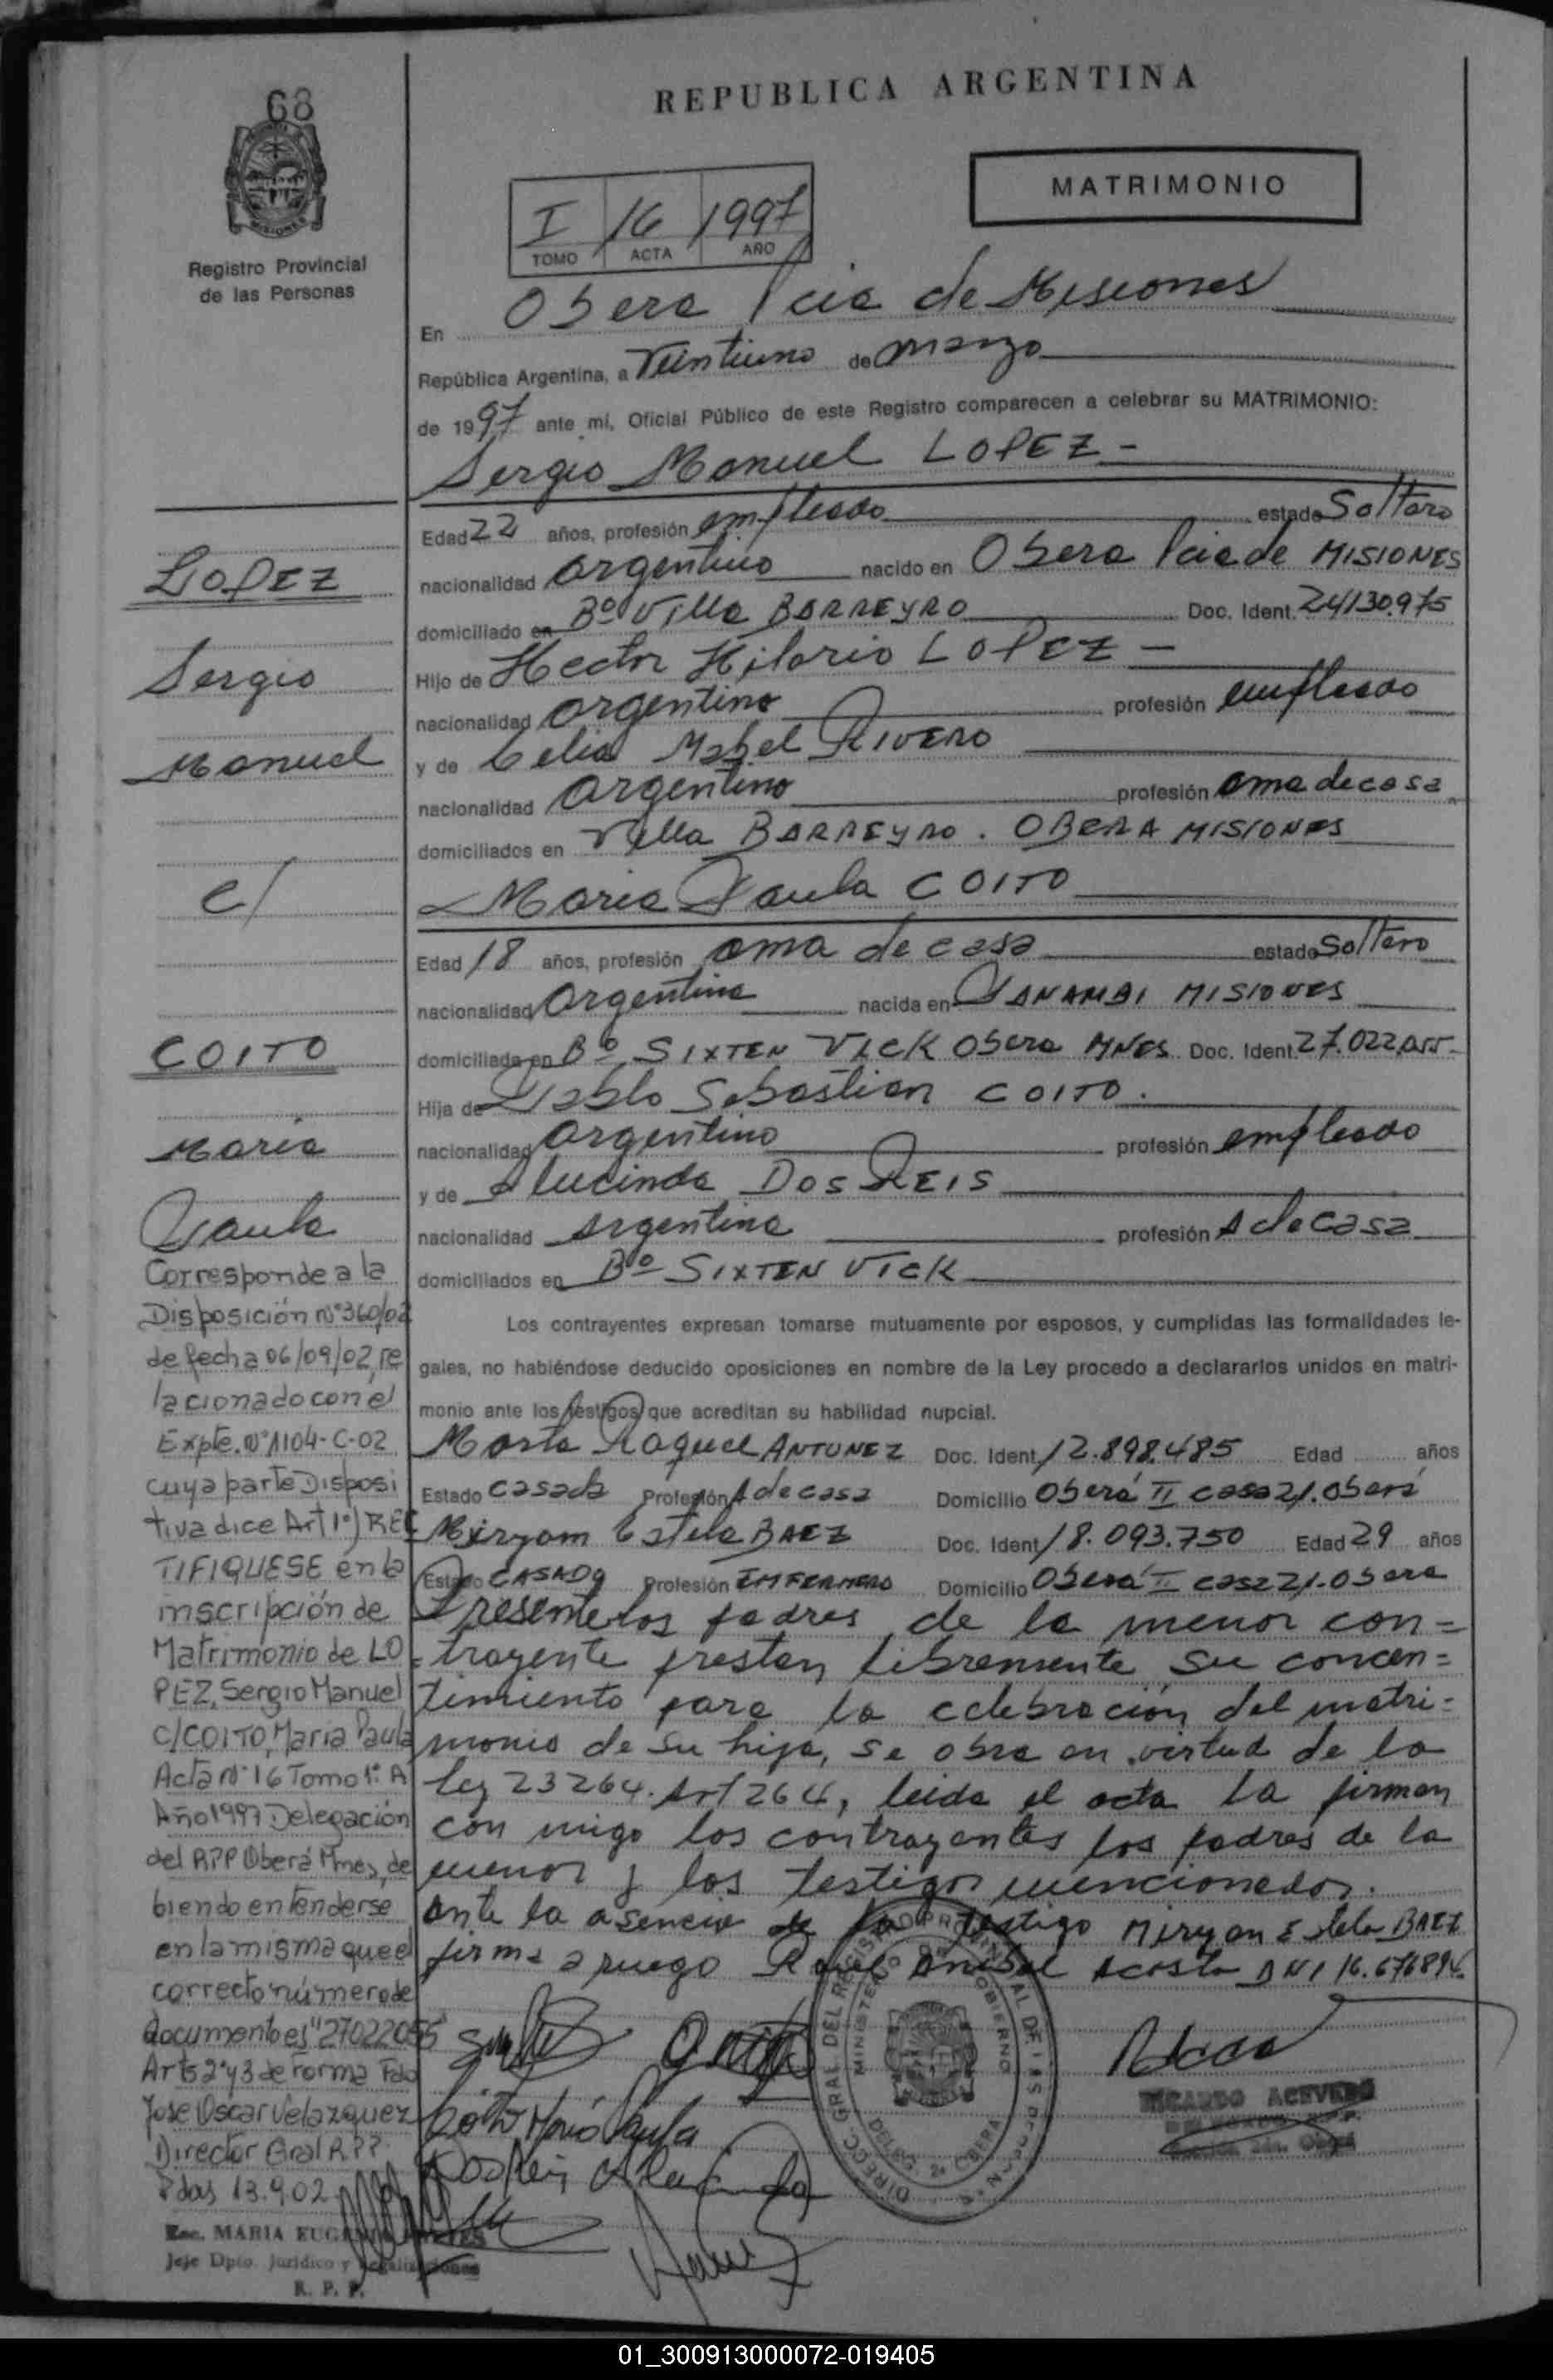 68
REPUBLICA ARGENTINA
MATRIMONIO
I 16 1997
TOMO ACTA AÑO
MISIONES
Registro Provincial
de las Personas
En Obera Pcia de Misiones
República Argentina, a Veintiuno de marzo
de 1997 ante mí, Oficial Público de este Registro comparecen a celebrar su MATRIMONIO:
Sergio Manuel LOPEZ -
Edad 22 años, profesión empleado estado Soltero
nacionalidad argentino nacido en Obera Pcia de MISIONES
domiciliado en Bº Villa BARREYRO Doc. Ident. 24130.975
Hijo de Hector Hilario LOPEZ -
nacionalidad argentino profesión empleado
y de Celia Mabel RIVERO
nacionalidad argentino profesión ama de casa
domiciliados en Villa BARREYRO . OBERA MISIONES
Maria Paula COITO
Edad 18 años, profesión ama de casa estado Soltero
nacionalidad Argentina nacida en PANAMBI MISIONES
domiciliada en Bº SIXTEN VICK Obera MNES Doc. Ident. 27.022.055-
Hija de Pablo Sebastian COITO.
nacionalidad argentino profesión empleado
y de Alucinda DOS REIS
nacionalidad Argentina profesión A de casa
domiciliados en Bº SIXTEN VICK
Los contrayentes expresan tomarse mutuamente por esposos, y cumplidas las formalidades le-
gales, no habiéndose deducido oposiciones en nombre de la Ley procedo a declararlos unidos en matri-
monio ante los testigos que acreditan su habilidad nupcial.
Marta Raquel ANTUNEZ Doc. Ident 12.898.485 Edad años
Estado casada Profesión A de casa Domicilio Oberá II casa 21. Oberá
Miryam Estela BAEZ Doc. Ident 18.093.750 Edad 29 años
Estado CASADA Profesión ENFERMERA Domicilio Oberá II casa 21. Obera
Presente los padres de la menor con=
trayente prestan libremente su concen=
timiento para la celebración del matri=
monio de su hija, se obra en virtud de la
ley 23264. Art 264, leida el acta la firman
con migo los contrayentes los padres de la
menor y los testigos mencionados.
Ante la asencia de la testigo Miryan Estela BAEZ
firma a ruego Raul Anibal Acosta DNI 16.676894
LOPEZ
Sergio
Manuel
c/
COITO
Maria
Paula
Corresponde a la
Disposición Nº360/02
de fecha 06/09/02, re
lacionado con el
Expte. Nº1104-C-02
cuya parte Disposi
tiva dice Art 1º) REC
TIFIQUESE en la
inscripción de
Matrimonio de LO
PEZ, Sergio Manuel
C/COITO, Maria Paula
Acta Nº 16 Tomo 1º A
Año 1997 Delegación
del RPP Oberá Mnes, de
biendo entenderse
en la misma que el
correcto número de
documento es "27022055
Arts 2º y 3 de Forma Fdo
Jose Oscar Velazquez
Director Gral R.P.P.
Pdas 13.9.02
Esc. MARIA EUGENIA
Jefe Dpto. Jurídico y Legalizaciones
R. P. P.
Coito María Paula
Dos Reis Alucinda
DIRECC. GRAL. DEL REGISTRO PROVINCIAL DE LAS PERSONAS
MINISTERIO DE GOBIERNO
DELEG. 2ª OBERA
RICARDO ACEVEDO
01_300913000072-019405